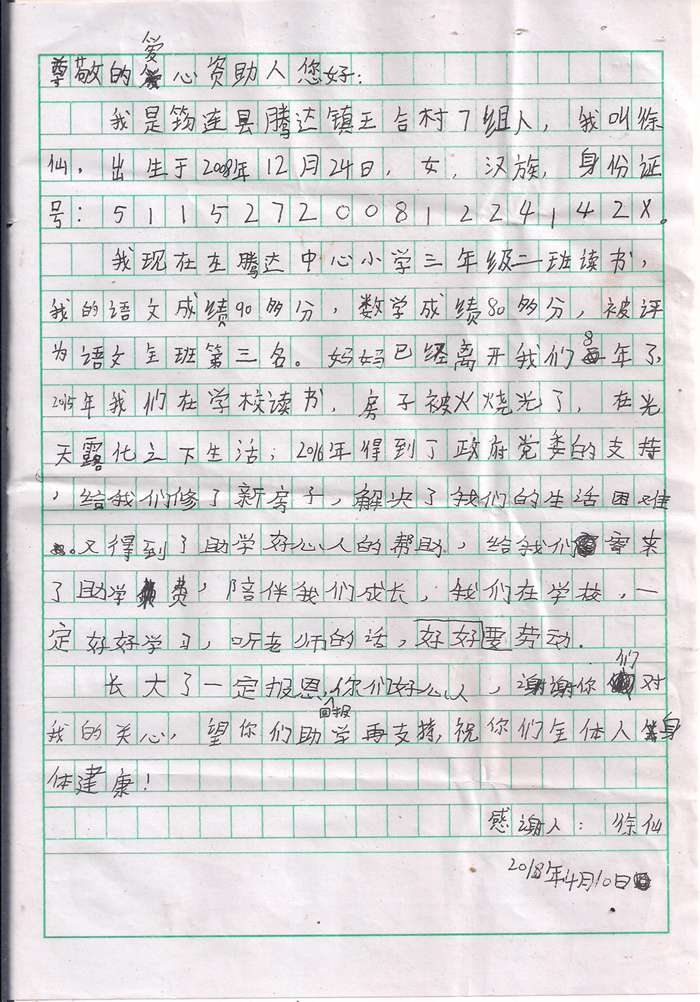 尊敬的爱心资助人您好:
我是筠连县腾达镇王台村7组人，我叫徐
仙，出生于2008年12月24日，女，汉族，身份证
号：51152720081224142X。
我现在在腾达中心小学三年级二班读书，
我的语文成绩90多分，数学成绩80多分，被评
为语文全班第三名。妈妈已经离开我们8年了，
2015年我们在学校读书，房子被火烧光了，在光
天露化之下生活；2016年得到了政府党委的支持
，给我们修了新房子，解决了我们的生活困难
。又得到了助学好心人的帮助，给我们带来
了助学费，陪伴我们成长，我们在学校，一
定好好学习，听老师的话，好好要劳动．
长大了一定报恩，回报你们好心人，谢谢你们对
我的关心，望你们助学再支持，祝你们全体人身
体建康！
感谢人：徐仙
2018年4月10日